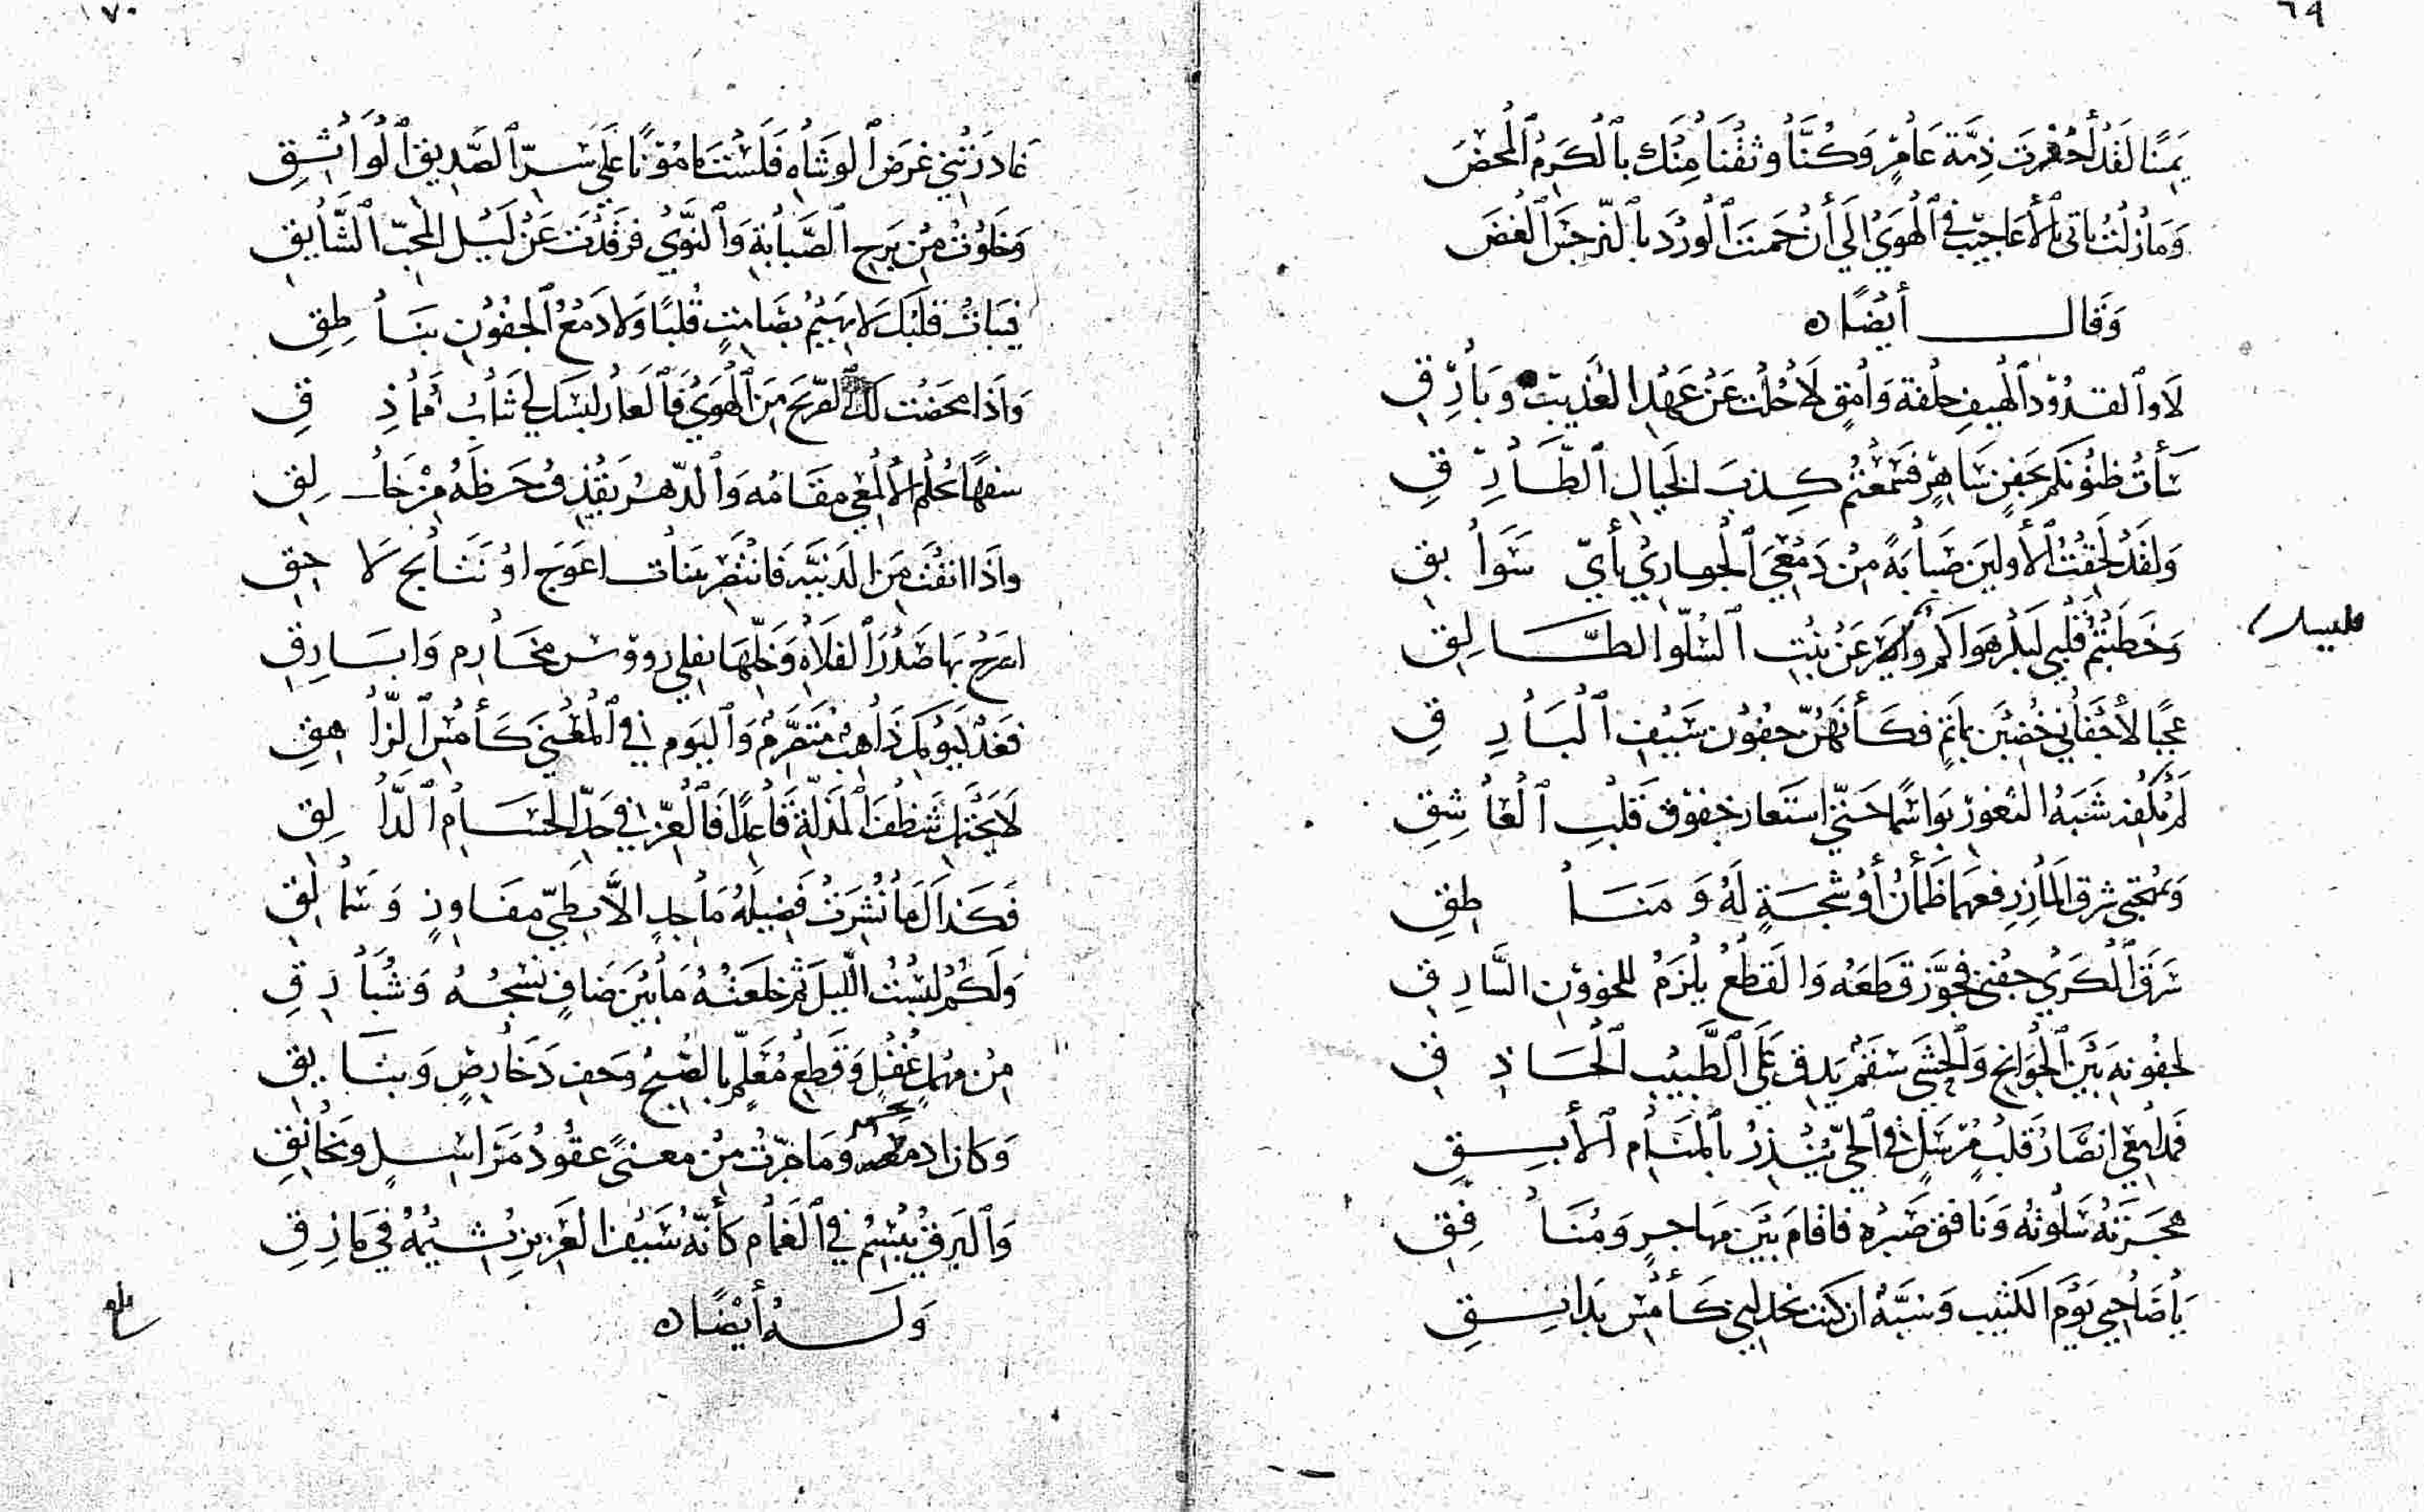 ٦٩
يَمِنًا لَقَدْ أَخْفَرْتَ ذِمَّةَ عَامِرٍ وَكُنَّا وَثِقْنَا مِنْكَ بِالْكَرَمِ الْمَحْضِ
وَمَا زِلْتَ تَأْتِي بِالْأَعَاجِيبِ فِي الْهَوَى إِلَى أَنْ حَمَيْتَ الْوَرْدَ بِالنَّرْجِسِ الْغَضِّ
وَقَالَ أَيْضًا ه
لَا وَالْقُدُودِ الْهِيفِ حِلْفَةَ وَامِقٍ لَا حُلْتُ عَنْ عَهْدِ الْعُذَيْبِ وَبَارِقِ
سَأَتْ ظُنُونُكُمُ بِجَفْنٍ سَاهِرٍ فَمَتَّعْتُمُ كَذِبَ الْخَيَالِ الطَّارِقِ
وَلَقَدْ لَحِقْتُ الْأَوَّلِينَ صَبَابَةً مِنْ دَمْعِيَ الْجَارِي بِأَيِّ سَوَابِقِ
وَخَطَبْتُمُ قَلْبِي لِبِكْرِ هَوَاكُمُ عَنْ بِنْتِ السُّلُوِّ الطَّالِقِ
عَجَبًا لِأَجْفَانِي خُضِبْنَ بِدَمٍ فَكَأَنَّهُنَّ جُفُونُ سَيْفِ الْبَارِقِ
لَمْ يَكْفِهِ شَبَهُ الثُّغُورِ بَوَاسِمًا حَتَّى اسْتَعَارَ خُفُوقَ قَلْبِ الْعَاشِقِ
شَرَقَ الْكَرَى جَفْنِي فَجُوِّزَ قَطْعُهُ وَالْقَطْعُ يَلْزَمُ لِلْخَؤُونِ السَّارِقِ
لِجُفُونِهِ بَيْنَ الْجَوَانِحِ وَالْحَشَى سَقَمٌ يَدِقُّ عَلَى الطَّبِيبِ الْحَاذِقِ
قَلْبٌ مُرْسَلٌ فِي الْحَيِّ يُنْذِرُ بِالْمَنَامِ الْآبِقِ
هَجَرَتْهُ سَلْوَتُهُ وَنَافَقَ صَبْرُهُ فَأَقَامَ بَيْنَ مُهَاجِرٍ وَمُنَافِقِ
يَا صَاحِبِي يَوْمَ الْكَثِيبِ وَسِّهِ ان كُنْتَ كَأَمْسِ
١٧٠
غَادَرْتَنِي غَرَضَ الْوُشَاةِ فَلَسْتَ مَا مُؤْنًا عَلَى سِرِّ الصَّدِيقِ الْوَاثِقِ
وَخَلَوْتَ مِنْ بَرْحِ الصَّبَابَةِ وَالنَّوَى فَرَقَدْتَ عَنْ لَيْلِ الْمُحِبِّ الشَّائِقِ
فَبَاتَ قَلْبُكَ لَا يَهِيمُ بِصَامِتٍ قُلْبًا وَلَا دَمْعُ الْجُفُونِ بِنَاطِقِ
وَإِذَا مَحَضْتَ لَكَ الصَّرِيحَ مِنَ الْهَوَى فَالْعَارُ لُبْسُكَ لِي ثِيَابَ مُمَاذِقِ
سَفَهًا عَلِمَ الْأَلْمَعِيُّ مَقَامَهُ وَالدَّهْرُ يَقْذِفُ حَظَّهُ مِنْ حَالِقِ
وَإِذَا أَنِفْتَ مِنَ الدَّنِيَّةِ فَانْتَصِرْ بِبَنَاتِ أَعْوَجَ أَوْ نَتَائِجِ لَاحِقِ
اشْرَحْ بِهَا صَدْرَ الْفَلَاةِ وَخَلِّهَا تَفْلِي رُؤُوسَ مَخَارِمٍ وَأَبَارِقِ
فَغَدٌ كَيَوْمِكَ ذَاهِبٌ مُتَصَرِّمٌ وَالْيَوْمُ فِي الْمَعْنَى كَأَمْسِ الزَّاهِقِ
لَا تَحْتَمِلْ شَظَفَ الْمَذَلَّةِ قَاعِدًا فَالْعِزُّ فِي حَدِّ الْحُسَامِ الدَّالِقِ
فَكَذَاكَ مَا نُشِرَتْ فَضِيلَةُ مَاجِدٍ إِلَّا بِطَيِّ مَفَاوِزٍ وَسَمَالِقِ
وَلَكَمْ لَبِسْتُ اللَّيْلَ ثُمَّ خَلَعْتُهُ مَا بَيْنَ ضَافٍ نَسْجُهُ وَشُبَارِقِ
مِنْ مَهْمَهٍ غُفْلٍ وَقِطْعٍ مُعْلَمٍ بِالصُّبْحِ وَبَنَائِقِ
وَكَانَ وَمَا جَرَتْ مِنْ مَعْنًى عُقُودُ مَرَاسِلٍ وَمَخَانِقِ
وَالْبَرْقُ يَبْسِمُ فِي الْغَمَامِ كَأَنَّهُ سَيْفُ الْعَزِيزِ يُشِيمُهُ فِي مَازِقِ
وَلَهُ أَيْضًا ه